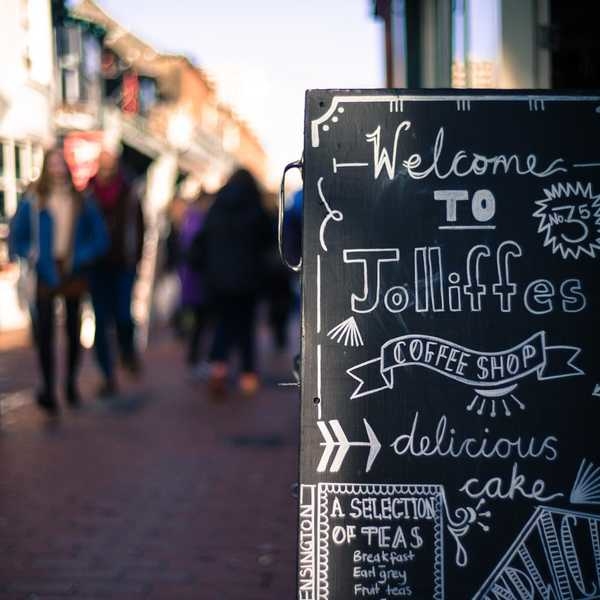 Welcome
TO
No. 35
Jolliffes
COFFEE SHOP
delicious
cake
A SELECTION
OF TEAS
Breakfast
Earl grey
Fruit teas
ENSINGTON